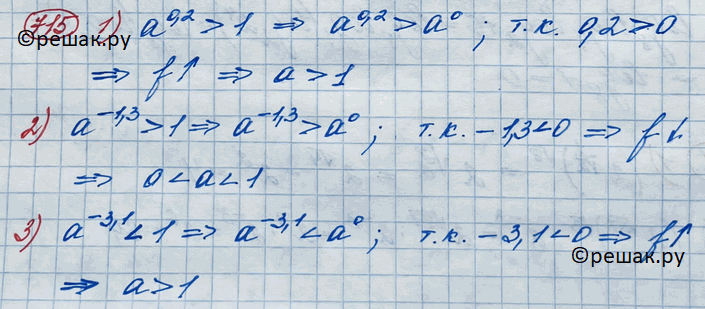 715 1) a^0,2 > 1 ⇒ a^0,2 > a^0 ; т.к. 0,2 > 0
©решак.ру
⇒ f↑ ⇒ a > 1
2) a^-1,3 > 1 ⇒ a^-1,3 > a^0 ; т.к. -1,3 < 0 ⇒ f↓
⇒ 0 < a < 1
3) a^-3,1 < 1 ⇒ a^-3,1 < a^0 ; т.к. -3,1 < 0 ⇒ f↑
©решак.ру
⇒ a > 1